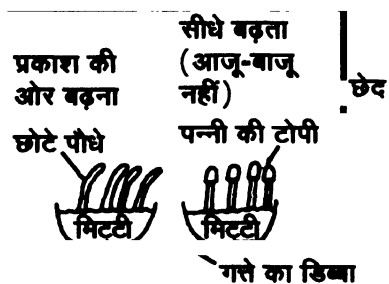 प्रकाश की
ओर बढ़ना
सीधे बढ़ता
(आजू-बाजू
नहीं)
छेद
छोटे पौधे
पन्नी की टोपी
मिट्टी
मिट्टी
गत्ते का डिब्बा